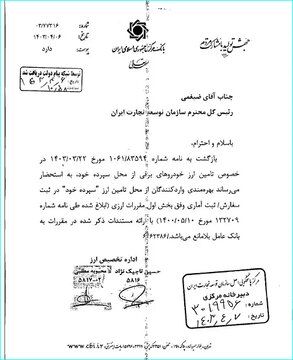 شماره: ۰۳/۷۷۳۱۶
تاریخ: ۱۴۰۳/۰۴/۰۶
پیوست: دارد
بانک مرکزی جمهوری اسلامی ایران
توسط شبکه پیام دولت دریافت شد
جناب آقای ضیغمی
رئیس کل محترم سازمان توسعه تجارت ایران
باسلام و احترام،
بازگشت به نامه شماره ۱۰۶۱/۸۳۵۹۴ مورخ ۱۴۰۳/۰۳/۲۲ در
خصوص تامین ارز خودروهای برقی از محل سپرده خود، به استحضار
می‌رساند بهره‌مندی واردکنندگان از محل تامین ارز "سپرده خود" در ثبت
سفارش/ ثبت آماری وفق بخش اول مقررات ارزی (ابلاغ شده طی نامه شماره
۱۳۲۷۰۹ مورخ ۱۴۰۰/۰۵/۱۰) با ارائه مستندات ذکر شده در مقررات به
بانک عامل بلامانع می‌باشد./
اداره تخصیص ارز
حسین قاچیک نژاد
۵۸۱۶
۵۸۱۷-۰۲
مرکز بایگی اصل سازمان توسعه تجارت ایران
دبیرخانه مرکزی
شماره:
تاریخ:
www.cbi.ir